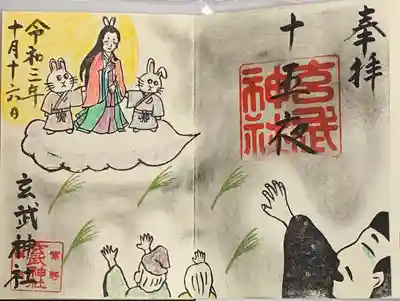 奉拝
十五夜
玄武
神社
令和三年
十月十六日
玄武神社